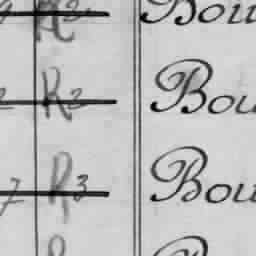 R 3 Bou
2 R 3 Bou
7 R 3 Bou